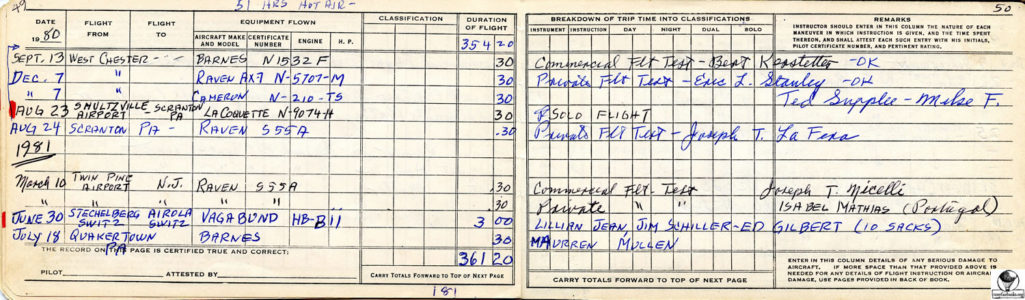 49
51 HRS HOT AIR-
50
DATE
1980
FLIGHT FROM
FLIGHT TO
EQUIPMENT FLOWN
AIRCRAFT MAKE AND MODEL
CERTIFICATE NUMBER
ENGINE
H. P.
CLASSIFICATION
DURATION OF FLIGHT
354 20
BREAKDOWN OF TRIP TIME INTO CLASSIFICATIONS
INSTRUMENT INSTRUCTION DAY NIGHT DUAL SOLO
REMARKS
INSTRUCTOR SHOULD ENTER IN THIS COLUMN THE NATURE OF EACH
MANEUVER IN WHICH INSTRUCTION IS GIVEN, AND THE TIME SPENT
THEREON, AND SHALL ATTEST EACH SUCH ENTRY WITH HIS INITIALS,
PILOT CERTIFICATE NUMBER, AND PERTINENT RATING.
SEPT. 13 WEST CHESTER - - - BARNES N1532F 30 Commercial Flt Test - Bert Kerstetter -OK
DEC. 7 " RAVEN AX7 N-5707-M 30 Private Flt Test - Eric L. Stanley -OK
" 7 " CAMERON N-210-TS 30 Ted Supplee - Mike F.
AUG 23 SHULTZVILLE AIRPORT - SCRANTON PA LA COQUETTE N-9074-H 30 SOLO FLIGHT
AUG 24 SCRANTON PA - RAVEN S55A .30 Private Flt Test - Joseph T. La Fera
1981
March 10 TWIN PINE AIRPORT N.J. RAVEN S55A .30 Commercial Flt- Test Joseph T. Micelli
" " " " .30 Private " " ISABEL MATHIAS (Portugal)
JUNE 30 STECHELBERG SWITZ AIROLA SWITZ VAGABUND HB-BII 3 00 LILLIAN JEAN, JIM SCHILLER-ED GILBERT (10 SACKS)
JULY 18 QUAKERTOWN PA BARNES 30 MAURREN MULLEN
THE RECORD ON THIS PAGE IS CERTIFIED TRUE AND CORRECT:
361 20
PILOT ATTESTED BY
CARRY TOTALS FORWARD TO TOP OF NEXT PAGE
181
CARRY TOTALS FORWARD TO TOP OF NEXT PAGE
ENTER IN THIS COLUMN DETAILS OF ANY SERIOUS DAMAGE TO
AIRCRAFT. IF MORE SPACE THAN THAT PROVIDED ABOVE IS
NEEDED FOR ANY DETAILS OF FLIGHT INSTRUCTION OR AIRCRAFT
DAMAGE, USE PAGES PROVIDED IN BACK OF BOOK.